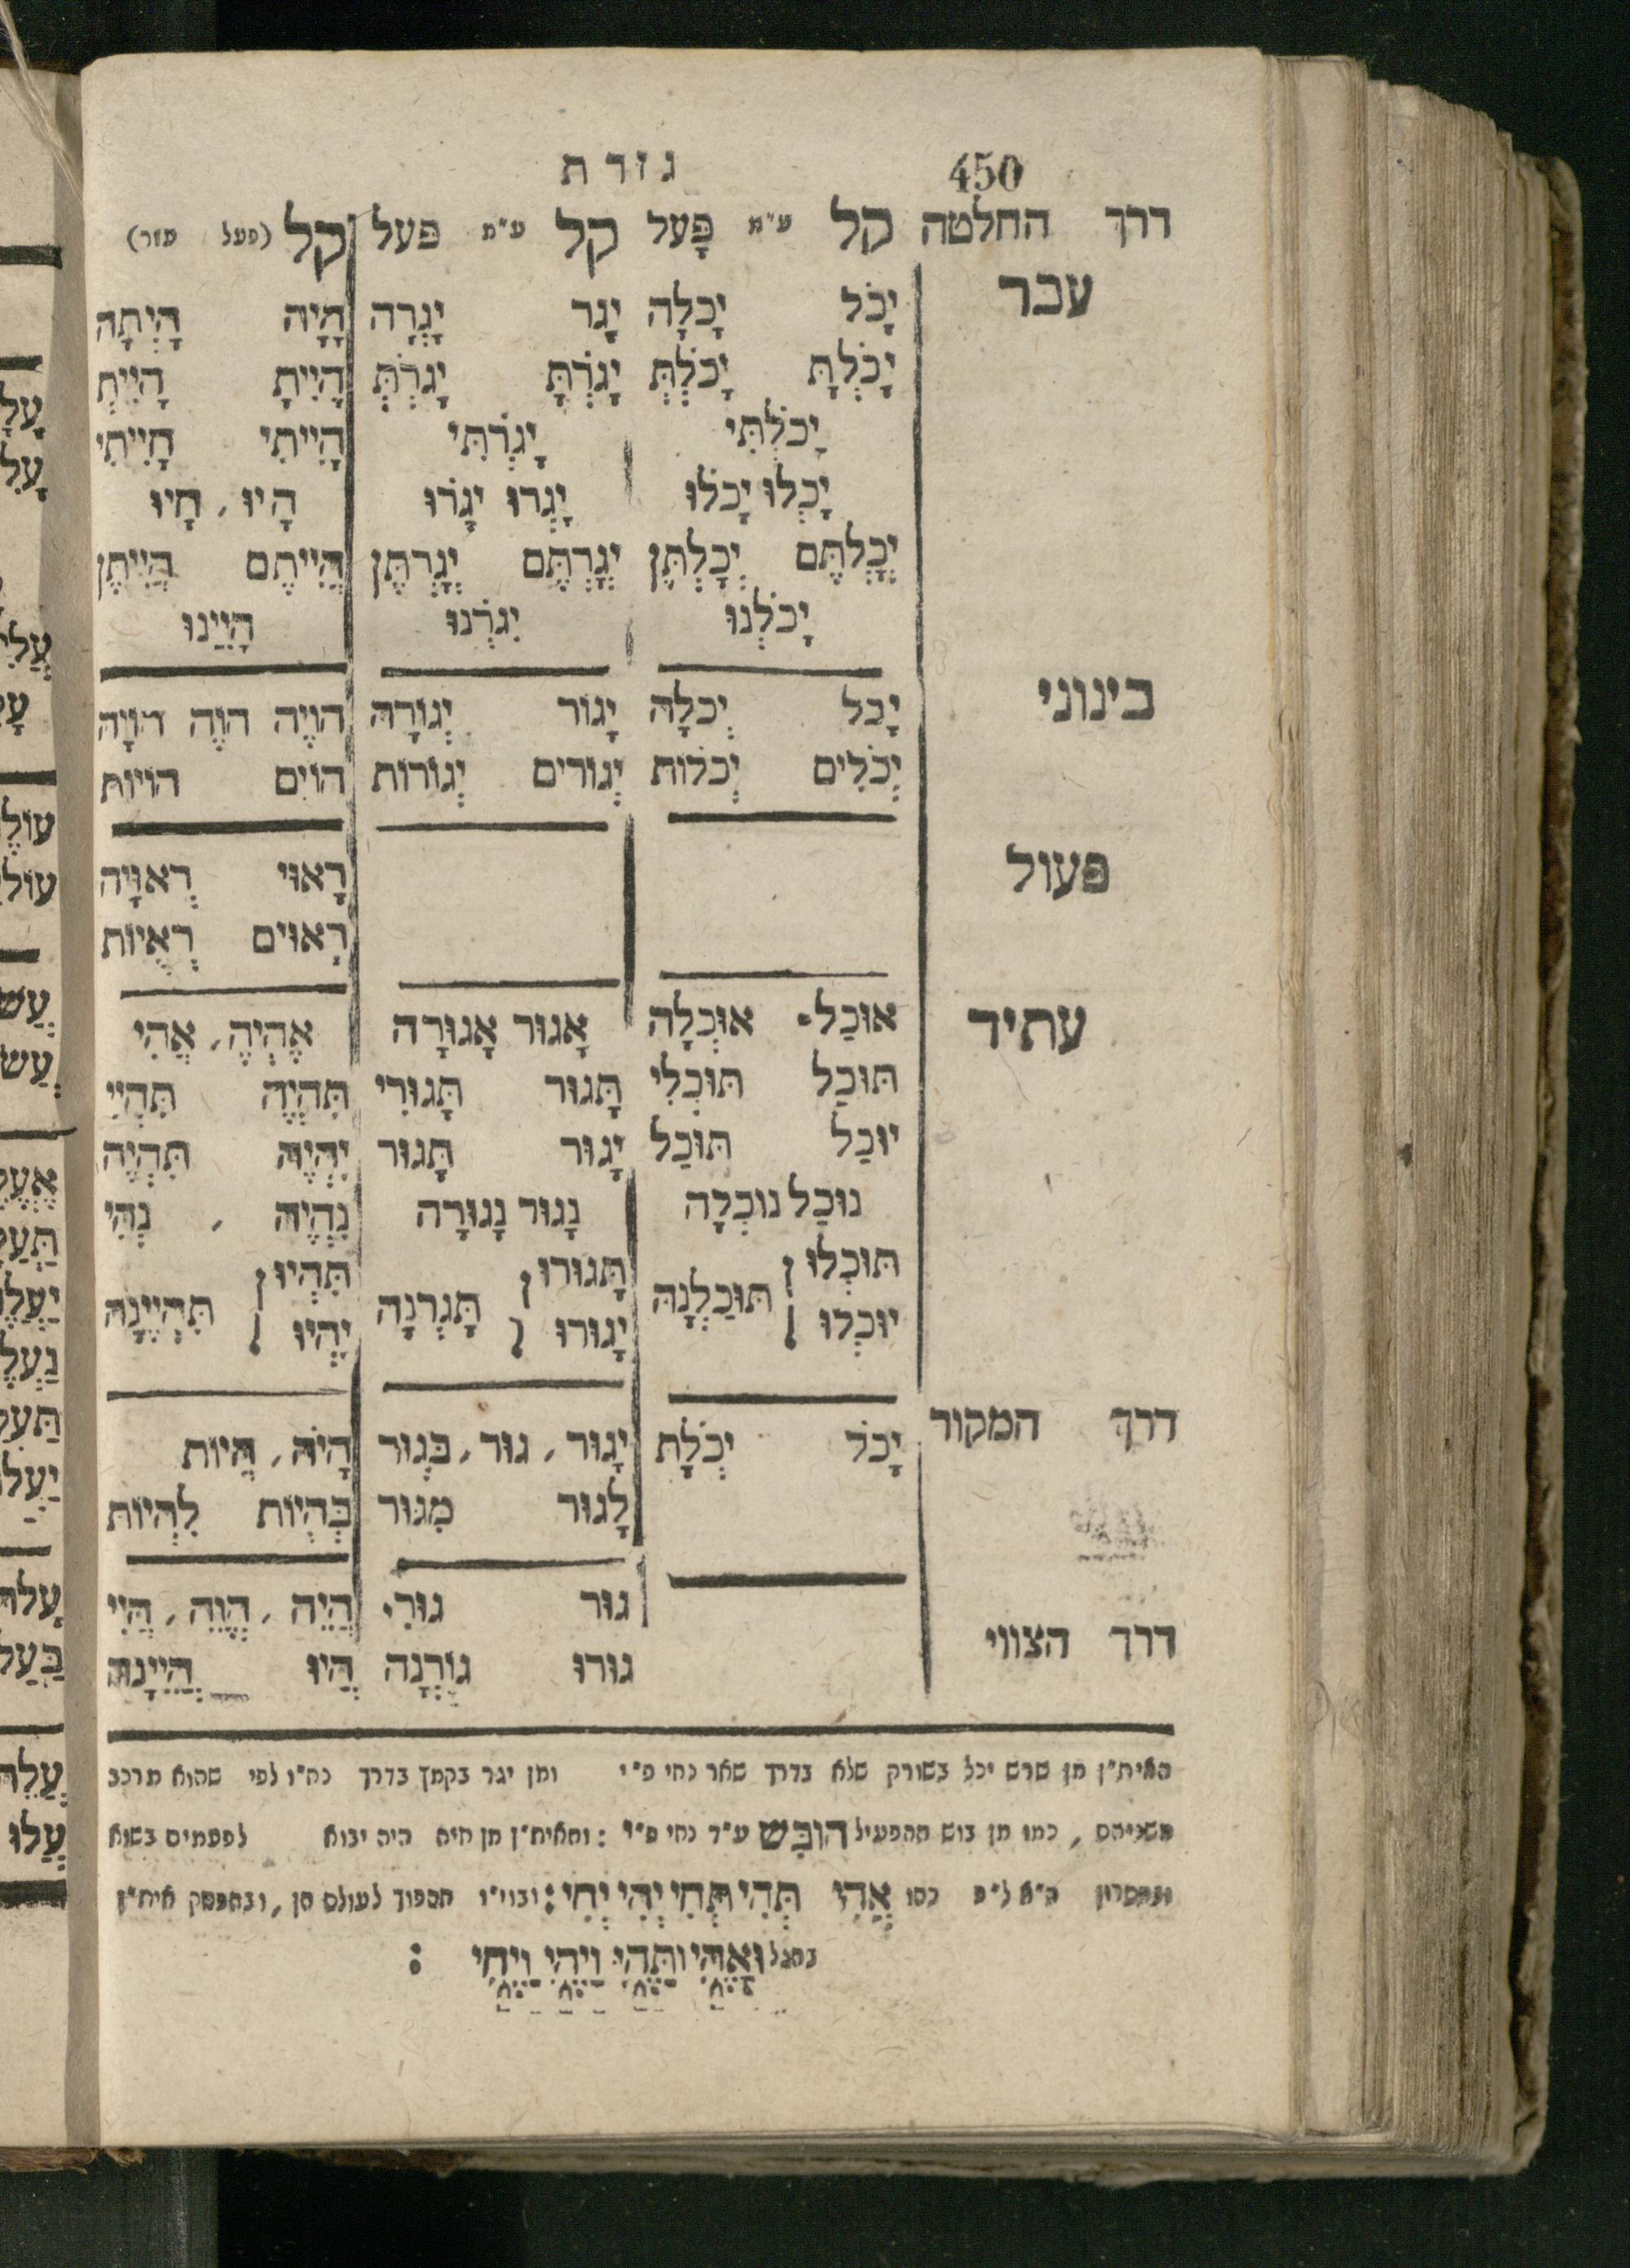 450 גזרת
דרך החלטה קל ע"מ פָּעל קל ע"מ פעל קל (פעל עזר)
עבר יָכֹל יָכְלָה יָגֹר יָגְרָה הָיָה הָיְתָה
יָכֹלְתָּ יָכֹלְתְּ יָגֹרְתָּ יָגֹרְתְּ הָיִיתָ הָיִית
יָכֹלְתִּי יָגֹרְתִּי הָיִיתִי חָיִיתִי
יָכְלוּ יָכֹלוּ יָגְרוּ יָגֹרוּ הָיוּ, חָיוּ
יְכָלְתֶּם יְכָלְתֶּן יְגָרְתֶּם יְגָרְתֶּן הֱיִיתֶם הֱיִיתֶן
יָכֹלְנוּ יגֹרְנוּ הָיִינוּ
בינוני יָכֹל יְכֹלָה יָגוֹר יְגוֹרָה הוֹיֶה הוֶֹה הוֹיָה
יְכֹלִים יְכֹלוֹת יְגוֹרים יְגוֹרוֹת הוֹיִם הוֹיוֹת
פעול רָאוּי רְאוּיָה
רְאוּיִם רְאֻיוֹת
עתיד אוּכַל אוּכְלָה אָגוּר אָגוּרָה אֶהְיֶה, אֱהִי
תּוּכַל תּוּכְלִי תָּגוּר תָּגוּרִי תִּהְיֶה תִּהְיִי
יוּכַל תּוּכַל יָגוּר תָּגוּר יִהְיֶה תִּהְיֶה
נוּכַל נוּכְלָה נָגוּר נָגוּרָה נִהְיֶה, נְהִי
תּוּכְלוּ תָּגוּרוּ תִּהְיוּ
תּוּכַלְנָה תָּגֹרְנָה תִּהְיֶינָה
יוּכְלוּ יָגוּרוּ יִהְיוּ
דרך המקור יָכֹל יְכֹלֶת יָגוּר, גוּר, בִּגְוֹר הָיֹה, הֱיוֹת
לָגוּר מִגּוּר בִּהְיוֹת לִהְיוֹת
דרך הצווי גוּר גוּרִי הֱיֵה, הֱוֵה, הֲיִי
גוּרוּ גוֹרְנָה הֱיוּ הֱיֶינָה
האית"ן מן שרש יכל בשורק שלא בדרך שאר נחי פ"י ומן יגר בקמץ בדרך נח"ו לפי שהוא מרכב
משניהם, כמו מן בוש מהפעיל הוֹבִישׁ ע"ד נחי פ"י: והאית"ן מן חיה היה יבוא לפעמים בשוא
ה"א ל"פ כמו אֱהִי תְּהִי תְּחִי יְהִי יְחִי: ובוי"ו הספוך לעולם כן, ובהפסק אית"ן
בסגל וָאֱהִי וַתְּהִי וַיְהִי וַיְחִי :